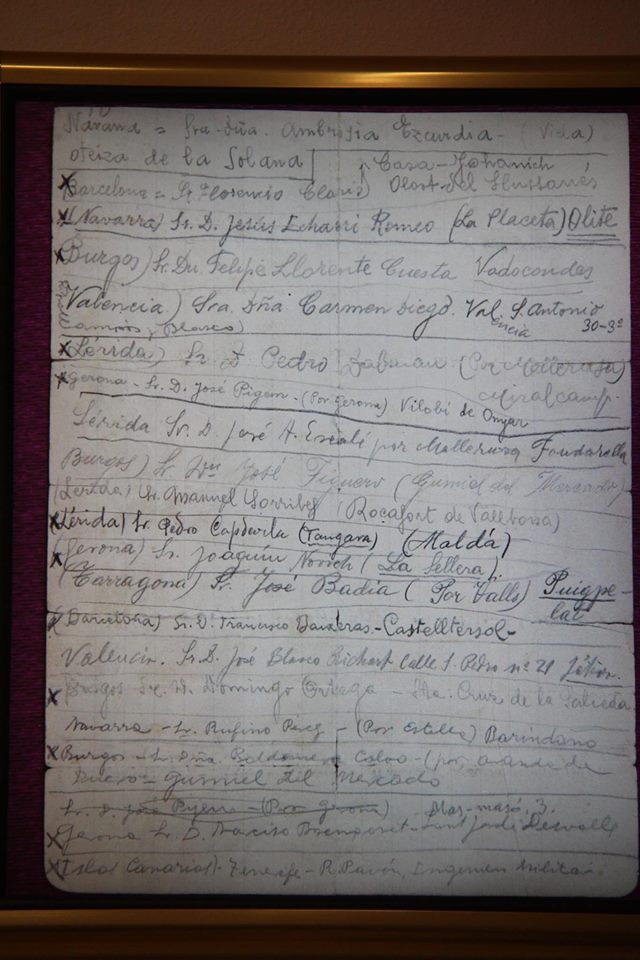 Navarra = Sra. Dña. Ambrosia Ezcurdia - (Vida)
oteiza de la Solana
Casa - Johanich
X Barcelona = Sr Florencio Claris) Olost del Llussanés
X (Navarra) Sr. D. Jesús Echarri Romeo (La Placeta) Olite
X Burgos) Sr. Dn. Felipe Llorente Cuesta Vadocondes
Valencia) Sra Dña Carmen Diego. Valencia S. Antonio
30-3º
Campos, Blasco)
X (Lérida) Sr D Pedro (Por Mollerusa)
Miralcamp.
X Gerona - Sr. D. José Pigem - (Por Gerona) Vilobí de Onyar
Lérida Sr. D. José A. Escolé por Mollerusa Fondarella
Burgos) Sr Dn José Figuero (Gumiel del Mercado)
(Lérida) Sr. Manuel Sorribes (Rocafort de Vallbona)
X (Lérida) Sr. Pedro Capdevila (Tangara) (Maldá)
X (Gerona) Sr. Joaquín Novich (La Sellera)
(Tarragona) Sr. José Badía (Por Valls) Puigpe-
lat
X (Barcelona) Sr. D. Francisco Davveras - Castelltersol -
Valencia. Sr. D. José Blasco Richart Calle S. Pedro nº 21 Játiva.
X Burgos Sr. D. Domingo Ortega - Sta. Cruz de la Salceda
Navarra - Sr. Rufino Perez - (Por Estella) Barindano
X Burgos - Sr. Dña. Baldomera Calvo - (por aranda de
Duero - Gumiel del Mercado
Sr. D. José Pijem - (Por Gerona) Mas-masó, 3.
X Gerona Sr. D. Narciso - Sant Jordi Desvalls
X Islas Canarias) - Tenerife - R. Pavón, Ingenieros Militar